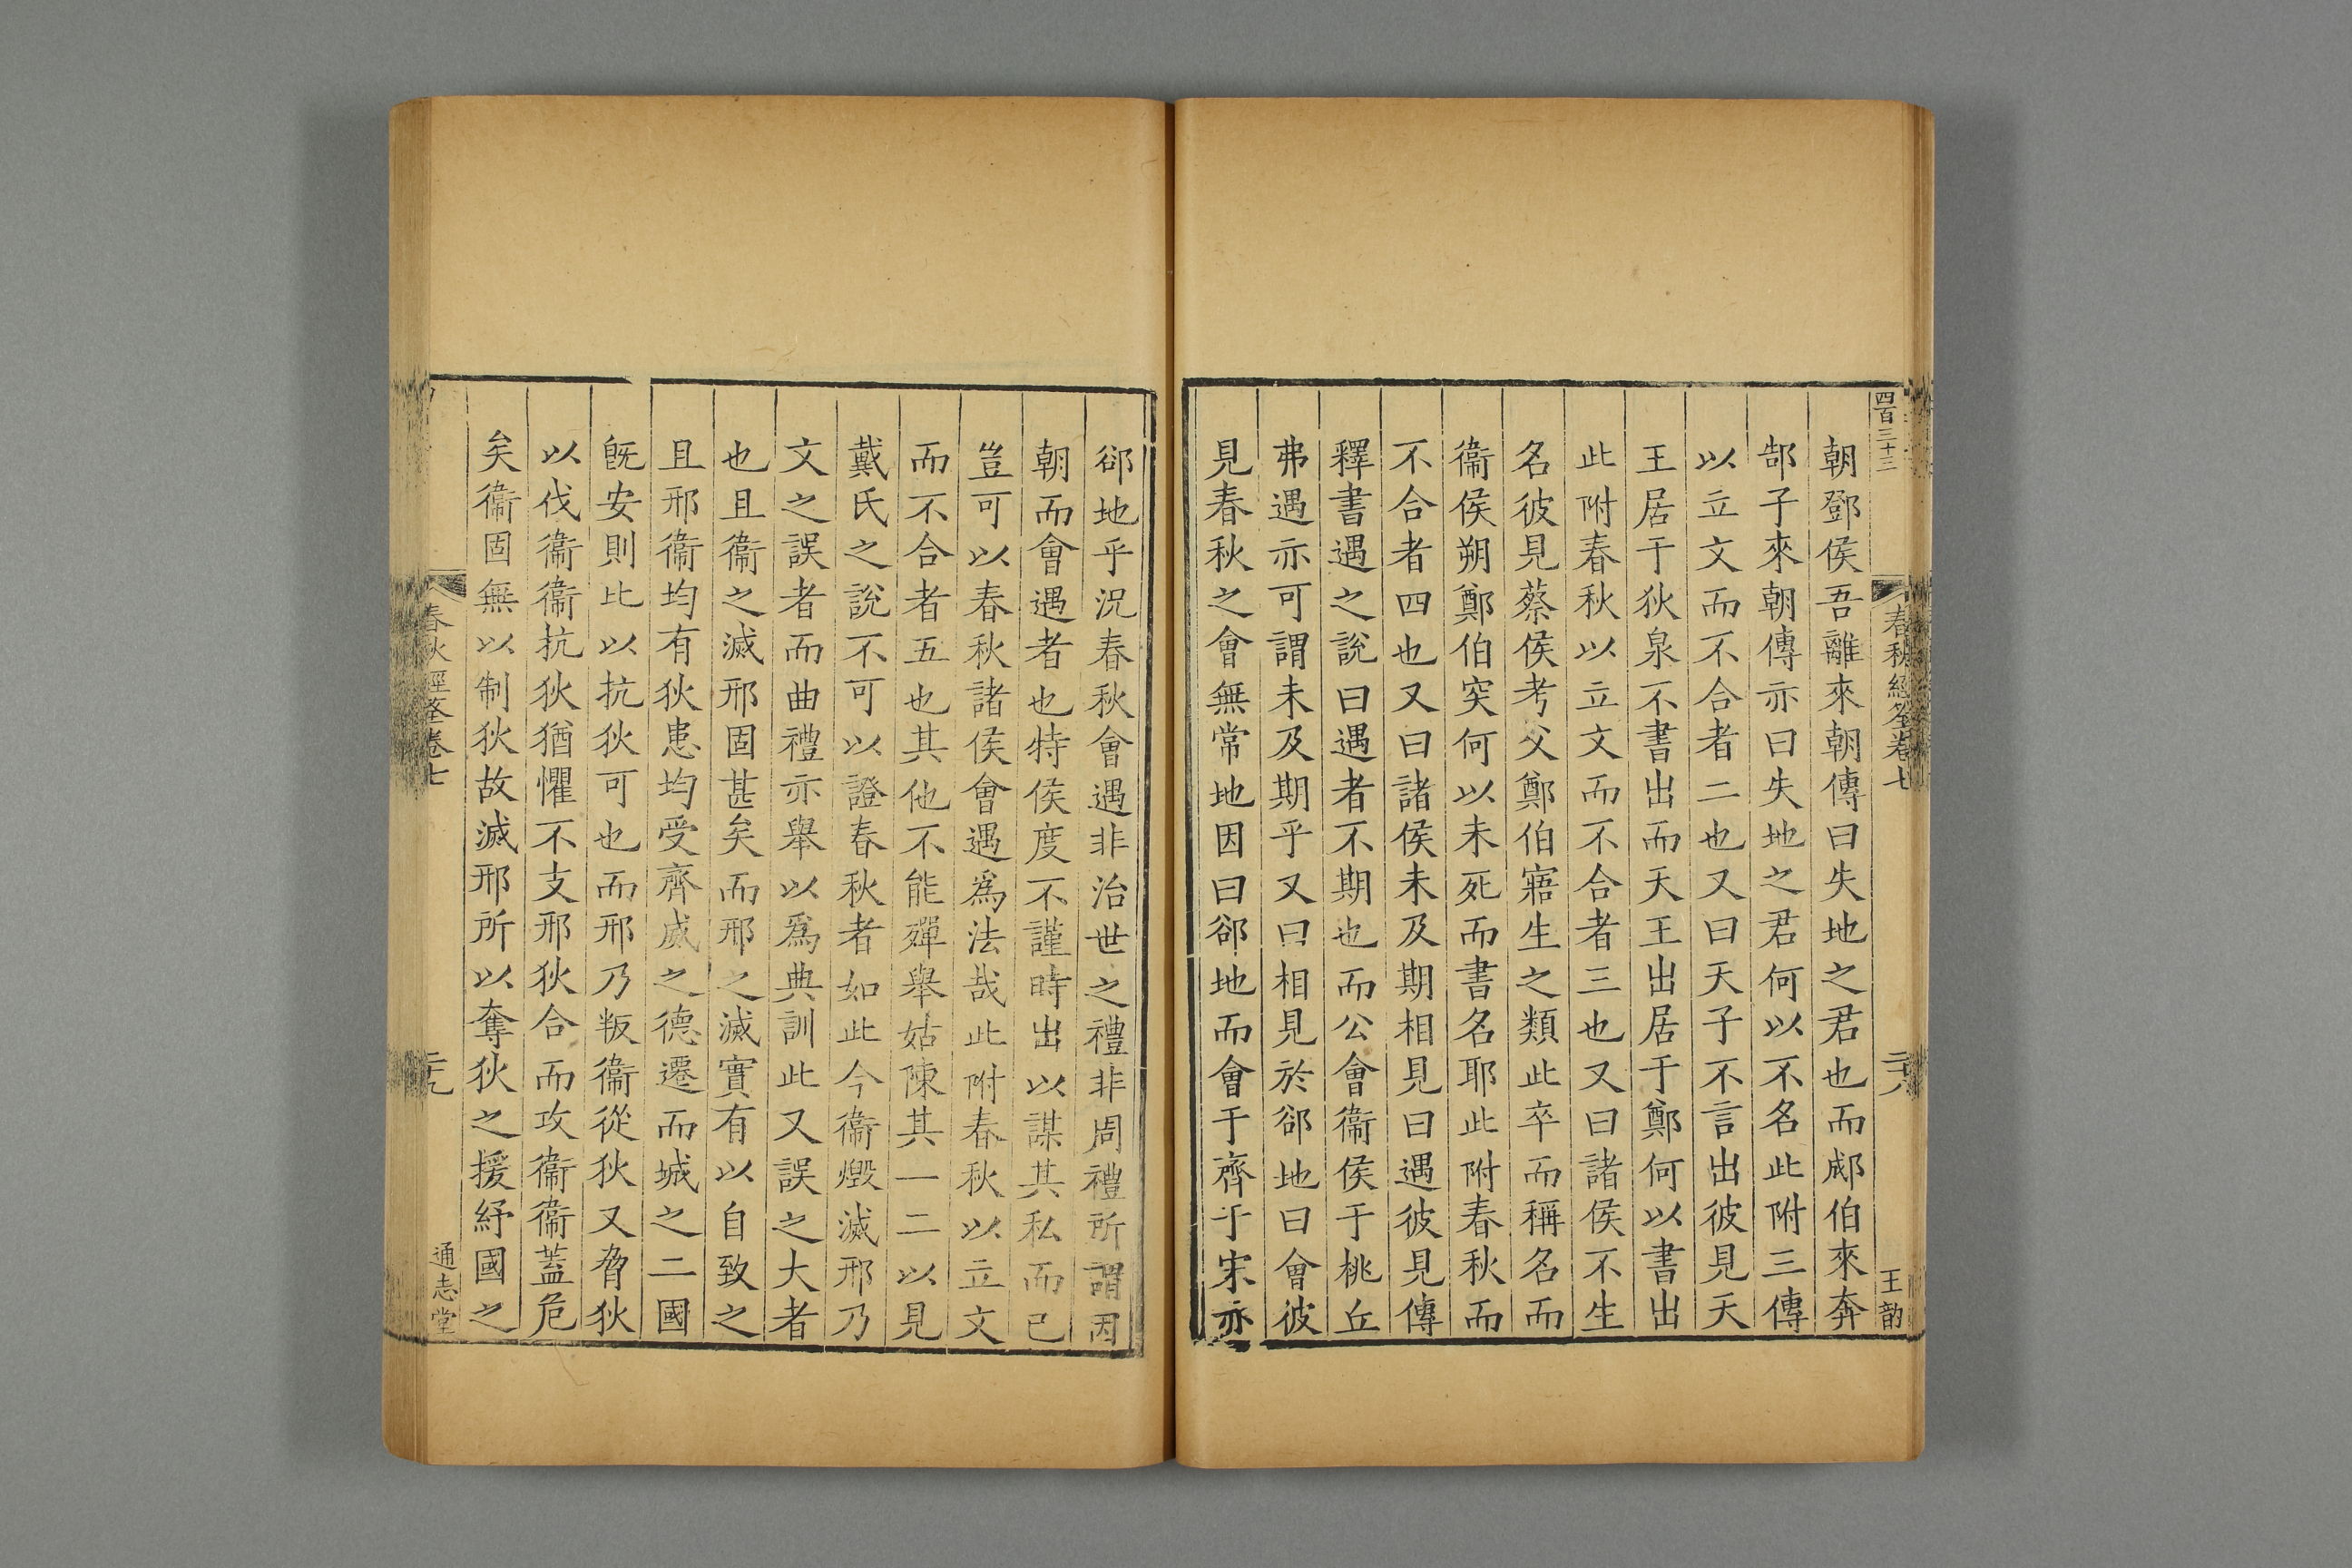 四百三十三
春秋經筌卷七
二十八
王韵
朝鄧侯吾離來朝傳曰失地之君也而郕伯來奔
郜子來朝傳亦曰失地之君何以不名此附三傳
以立文而不合者二也又曰天子不言出彼見天
王居于狄泉不書出而天王出居于鄭何以書出
此附春秋以立文而不合者三也又曰諸侯不生
名彼見蔡侯考父鄭伯寤生之類此卒而稱名而
衞侯朔鄭伯突何以未死而書名耶此附春秋而
不合者四也又曰諸侯未及期相見曰遇彼見傳
釋書遇之說曰遇者不期也而公會衞侯于桃丘
弗遇亦可謂未及期乎又曰相見於郤地曰會彼
見春秋之會無常地因曰郤地而會于齊于宋亦
郤地乎況春秋會遇非治世之禮非周禮所謂因
朝而會遇者也特侯度不謹時出以謀其私而已
豈可以春秋諸侯會遇爲法哉此附春秋以立文
而不合者五也其他不能殫舉姑陳其一二以見
戴氏之說不可以證春秋者如此今衞燬滅邢乃
文之誤者而曲禮亦舉以爲典訓此又誤之大者
也且衞之滅邢固甚矣而邢之滅實有以自致之
且邢衞均有狄患均受齊威之德遷而城之二國
旣安則比以抗狄可也而邢乃叛衞從狄又脅狄
以伐衞衞抗狄猶懼不支邢狄合而攻衞衞蓋危
矣衞固無以制狄故滅邢所以奪狄之援紓國之
春秋經筌卷七
二十九
通志堂